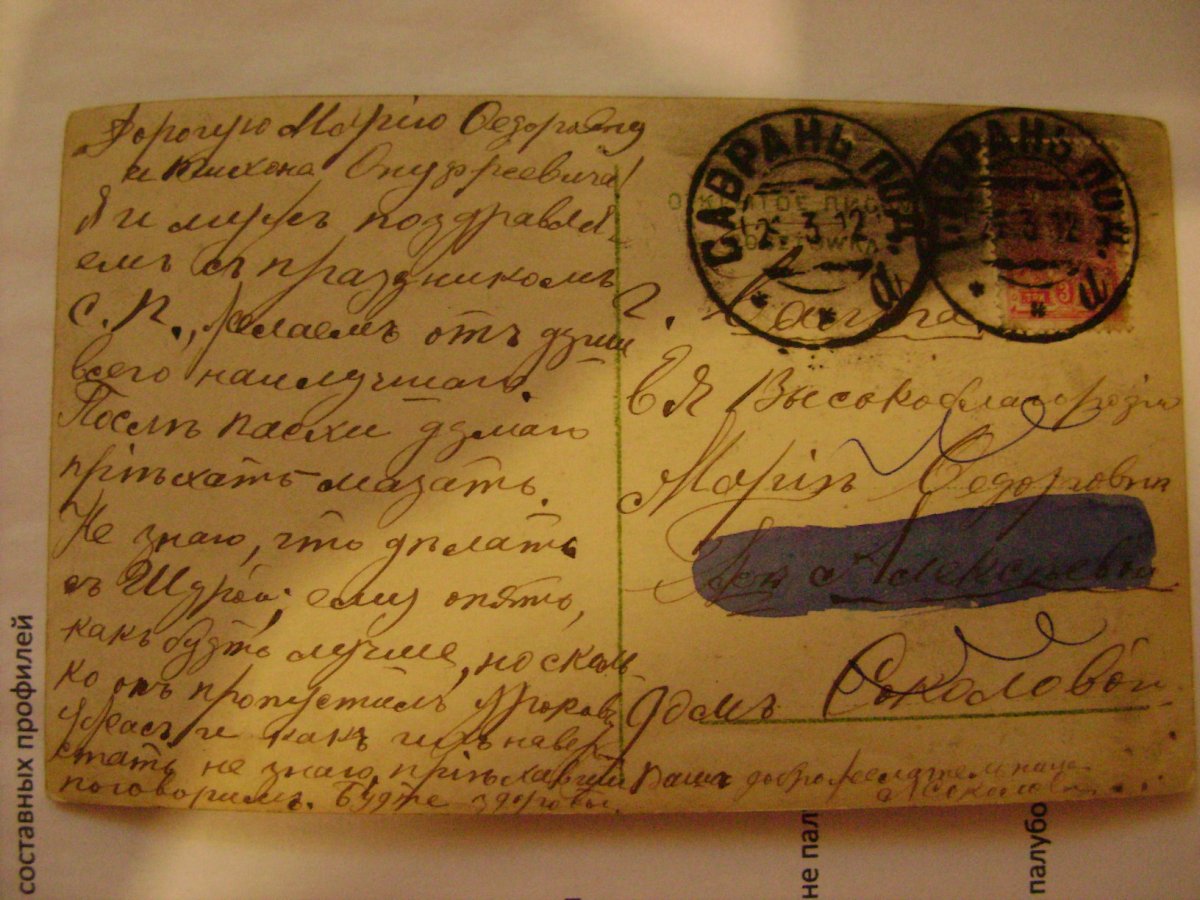 Дорогую Марію Ѳедоровну
и Тихона Онуфріевича!
Я и мужъ поздравля-
емъ съ праздникомъ
С. П., желаемъ отъ души
всего наилучшаго.
Послѣ пасхи думаю
пріѣхать мазать.
Не знаю, что дѣлать
съ Шурой; ему опять,
какъ будто лучше, но сколь
ко онъ пропустилъ уроковъ
и какъ ихъ навер
стать не знаю, пріѣхавши
поговоримъ. Будте здоровы.
Ваша доброжелательница
САВРАНЬ ПОД.
3 12
САВРАНЬ ПОД.
3 12
ОТКРЫТОЕ ПИСЬМО
POCZTÓWKA
3
г. Балта
Ея Высокоблагородію
Маріѣ Ѳедоровнѣ
Алексѣев
Домъ Соколовой
составных профилей
не пал
палубо